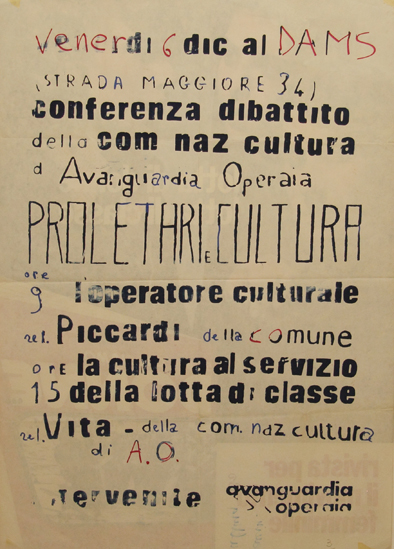 Venerdi 6 dic al DAMS
(STRADA MAGGIORE 34)
conferenza dibattito
della com naz cultura
d Avanguardia Operaia
PROLETARI E CULTURA
ore
9 l'operatore culturale
rel. Piccardi della comune
ORE la cultura al servizio
15 della lotta di classe
rel. Vita - della com. naz cultura
di A.O.
avanguardia
operaia
rivista per
femminile